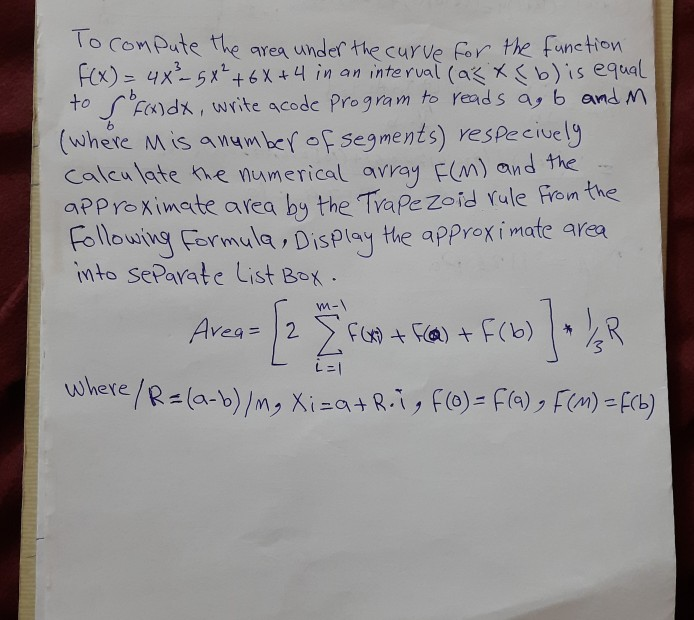 To compute the area under the curve for the function
f(x) = 4x³ - 5x² + 6x + 4 in an interval (a ≤ x ≤ b) is equal
to ∫_b^b F(x)dx, write acode Program to reads a, b and M
(where M is anumber of segments) respecively
calculate the numerical array F(M) and the
approximate area by the Trapezoid rule From the
Following Formula, Display the approximate area
into separate List Box.
Area = [2 Σ_{i=1}^{m-1} F(xi) + F(a) + F(b)] * 1/3 R
where / R = (a-b)/m, Xi = a + R.i, F(0) = F(a), F(M) = F(b)